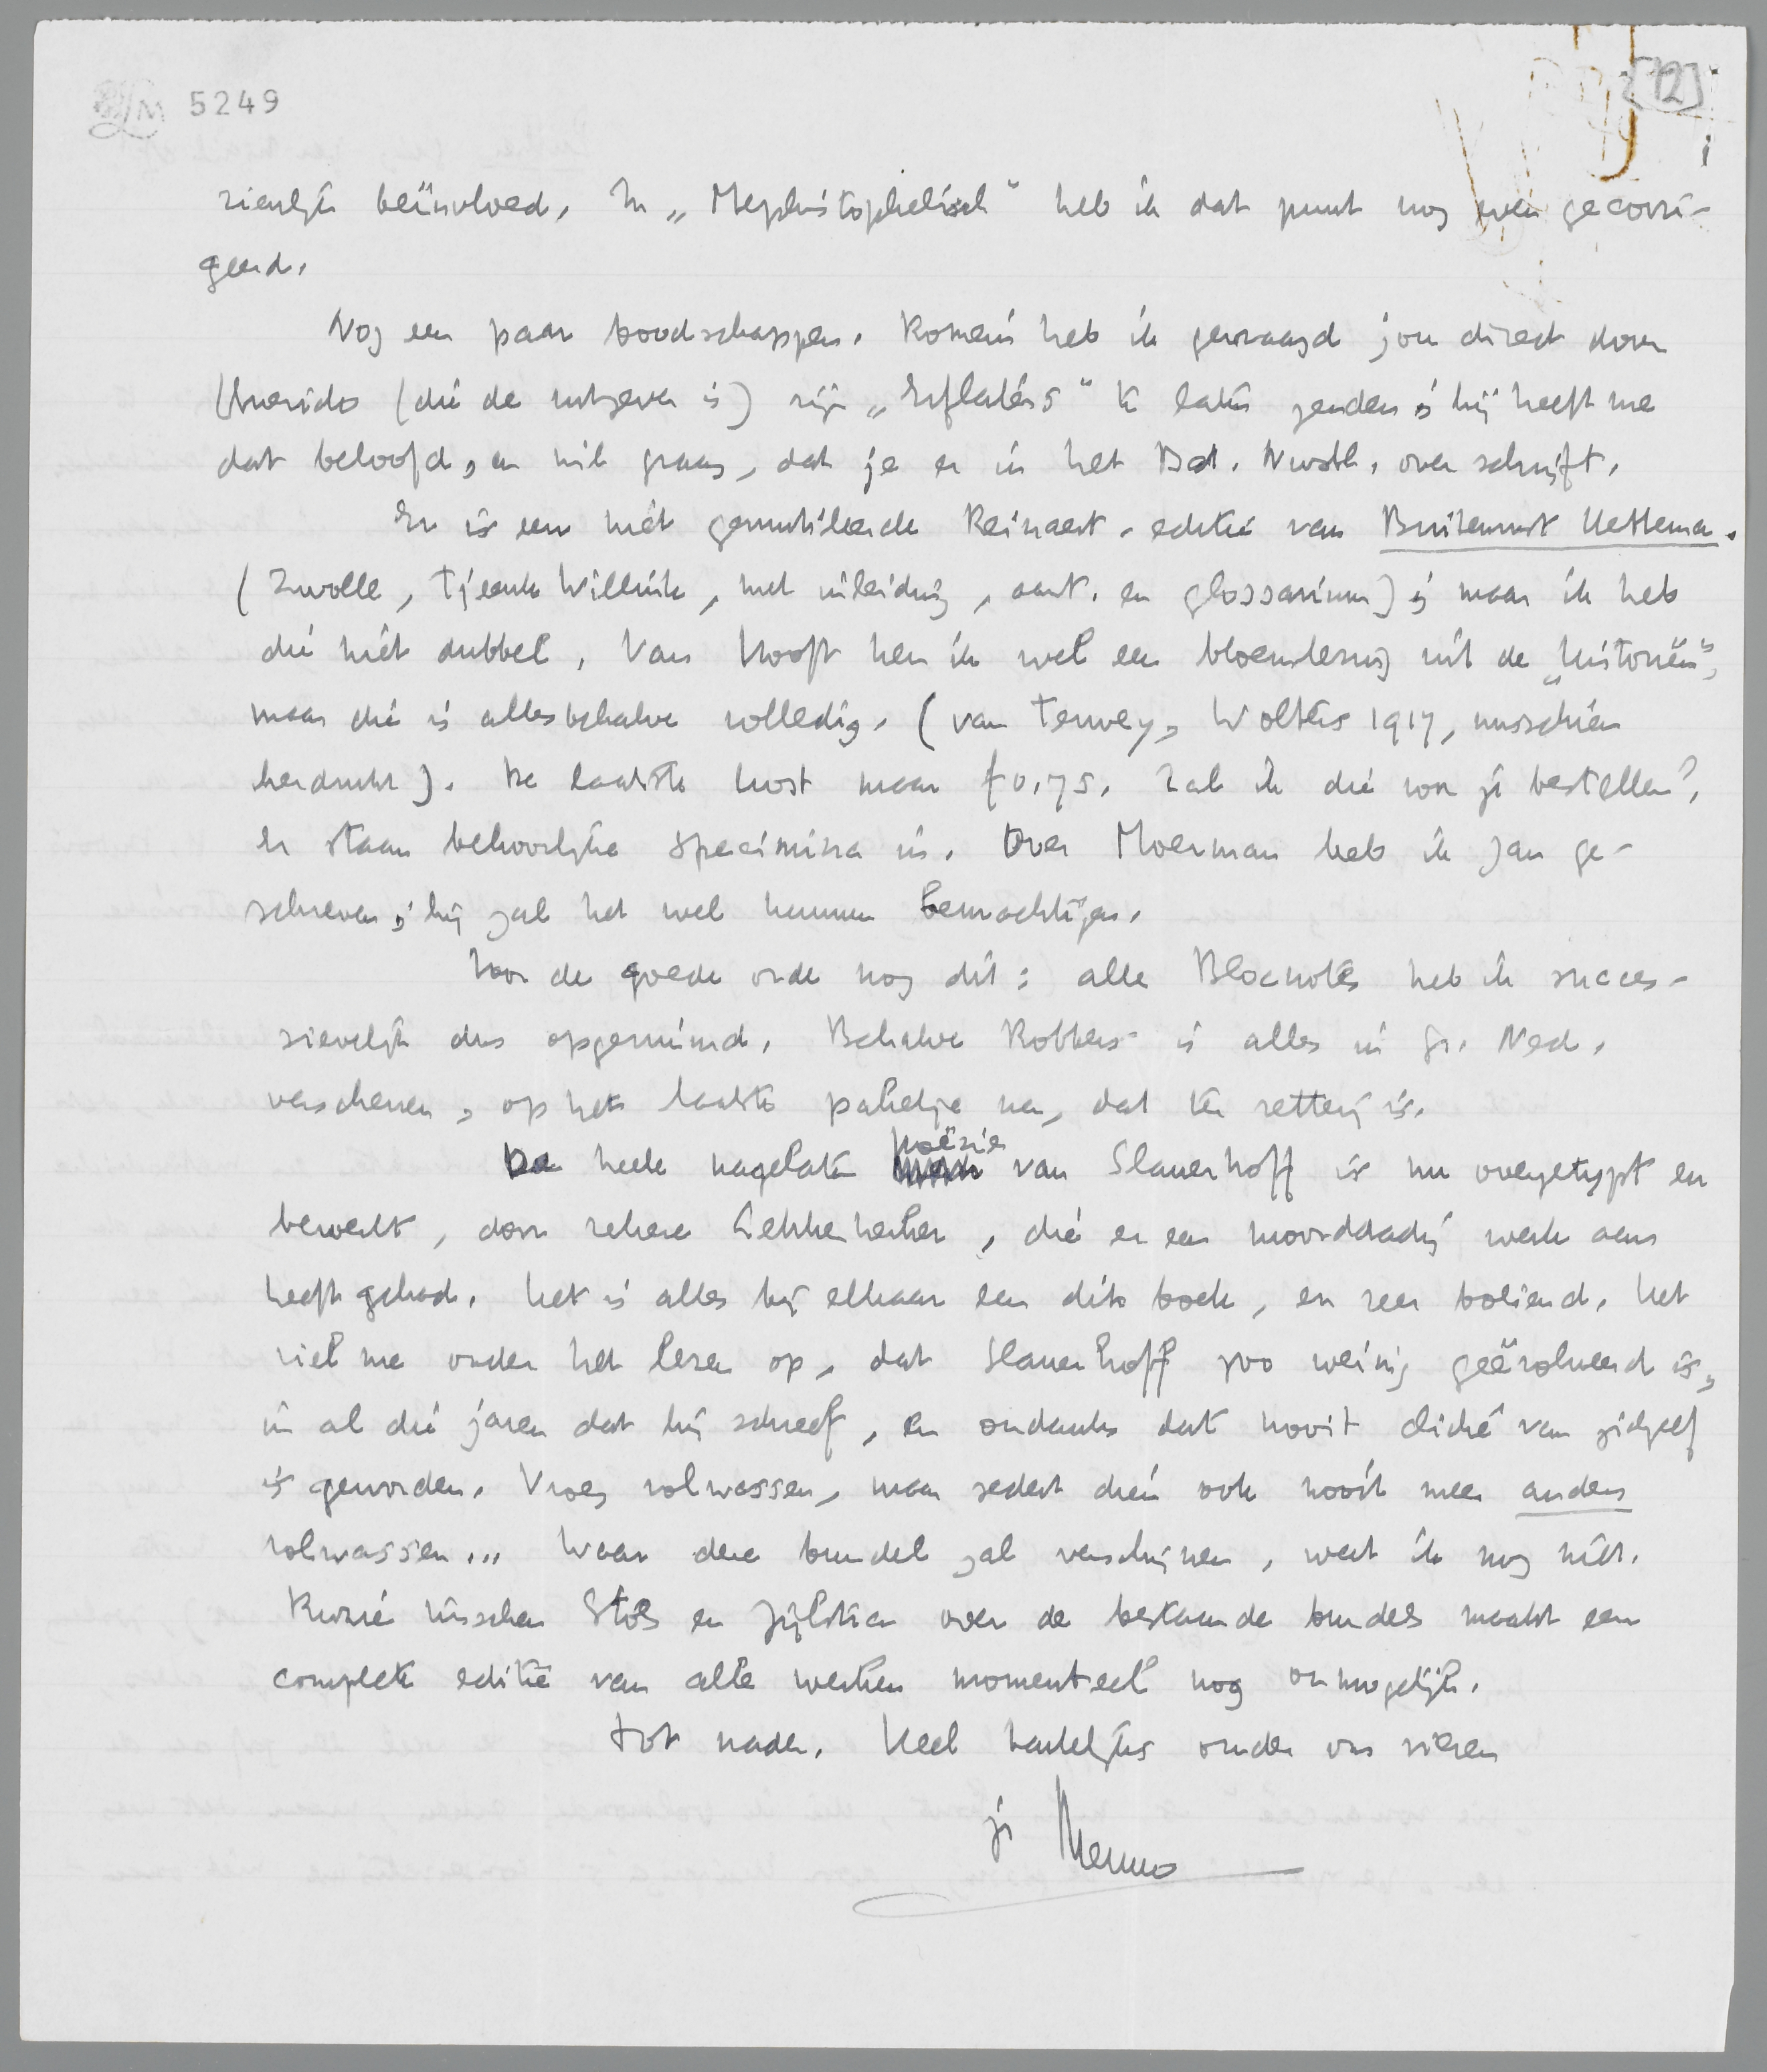 5249
[12]
zienlijk beïnvloed. In „Mephistophelisch" heb ik dat punt nog even gecorri-
geerd.
Nog een paar boodschappen. Romein heb ik gevraagd jou direct door
Querido (die de uitgever is) zijn „Erflaters" te laten zenden; hij heeft me
dat beloofd, en wil graag, dat je er in het Bat. Nwsbl. over schrijft.
Er is een niet gemutileerde Reinaert-editie van Buitenrust Hettema.
(Zwolle, Tjeenk Willink, met inleiding, aant. en glossarium); maar ik heb
die niet dubbel. Van Hooft ken ik wel een bloemlezing uit de „Historiën",
maar die is allesbehalve volledig. (van Terwey, Wolters 1917, misschien
herdrukt). De laatste kost maar f 0,75. Zal ik die voor je bestellen?
Er staan behoorlijke specimina in. Over Moerman heb ik Jan ge-
schreven; hij zal het wel kunnen bemachtigen.
Voor de goede orde nog dit: alle Blocnotes heb ik succes-
sievelijk dus opgeruimd. Behalve Robbers is alles in Gr. Ned.
verschenen, op het laatste pakketje na, dat ter zetterij is.
De heele nagelaten poëzie van Slauerhoff is nu overgetypt en
bewerkt, door zekere Lekkerkerker, die er een moorddadig werk aan
heeft gehad. Het is alles bij elkaar een dik boek, en zeer boeiend. Het
viel me onder het lezen op, dat Slauerhoff zoo weinig geëvolueerd is,
in al die jaren dat hij schreef, en ondanks dat nooit cliché van zichzelf
is geworden. Vroeg volwassen, maar sedert dien ook nooit meer anders
volwassen... Waar deze bundel zal verschijnen, weet ik nog niet.
Ruzie tusschen Stols en Zijlstra over de bestaande bundels maakt een
complete editie van alle werken momenteel nog onmogelijk.
Tot nader. Veel hartelijks onder ons vieren
je Menno